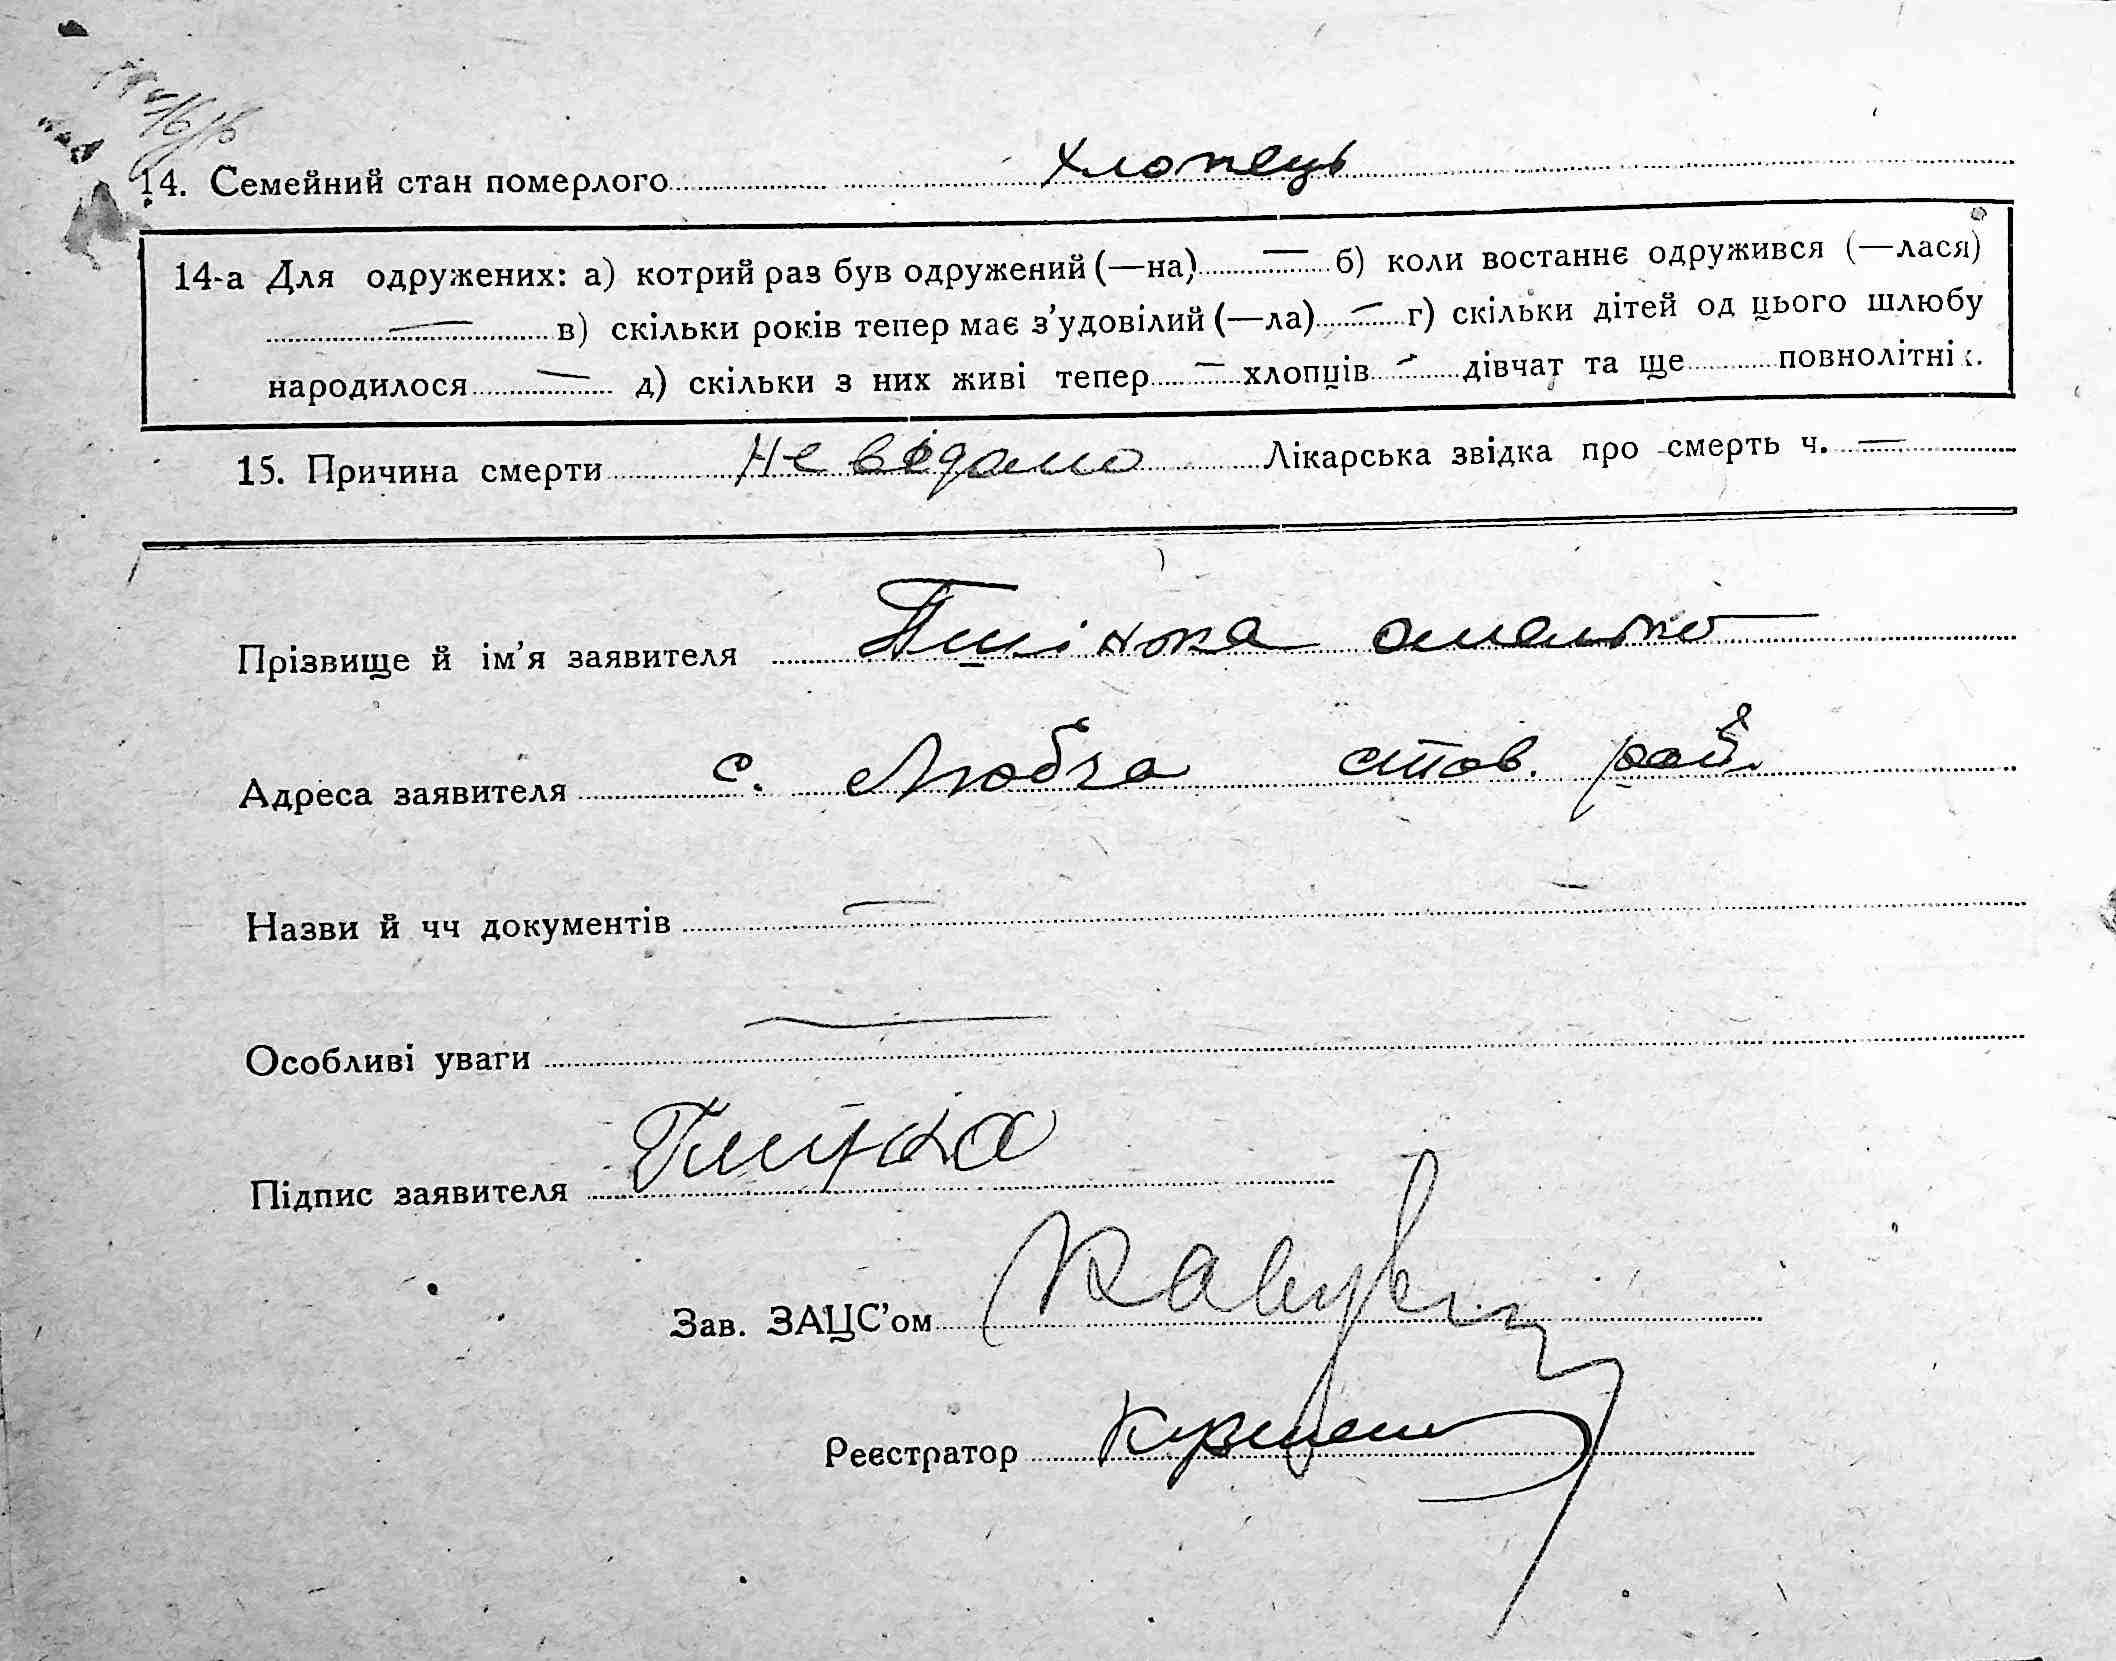 14. Семейний стан померлого хлопець
14-а Для одружених: а) котрий раз був одружений (—на) — б) коли востаннє одружився (—лася)
— в) скільки років тепер має з’удовілий (—ла) — г) скільки дітей од цього шлюбу
народилося — д) скільки з них живі тепер — хлопців — дівчат та ще повнолітніх.
15. Причина смерти не відомо Лікарська звідка про смерть ч. —
Прізвище й ім’я заявителя Пшінка Омелько
Адреса заявителя с. Любча став. рай.
Назви й чч документів —
Особливі уваги —
Підпис заявителя
Зав. ЗАЦС’ом
Реєстратор